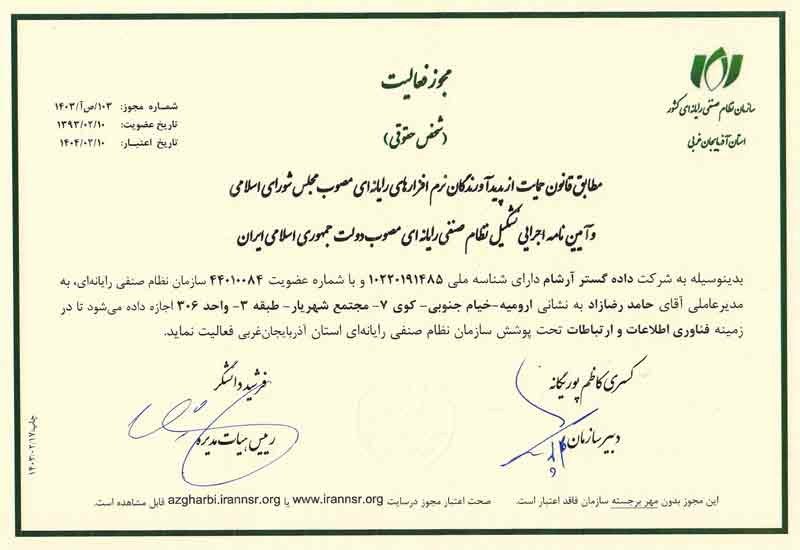 سازمان نظام صنفی رایانه ای کشور
استان آذربایجان غربی
مجوز فعالیت
(شخص حقوقی)
شماره مجوز: ۱۰۳/ص‌آ/۱۴۰۳
تاریخ عضویت: ۱۳۹۳/۰۲/۱۰
تاریخ اعتبار: ۱۴۰۴/۰۲/۱۰
مطابق قانون حمایت از پدیدآورندگان نرم افزارهای رایانه ای مصوب مجلس شورای اسلامی
و آیین نامه اجرایی تشکیل نظام صنفی رایانه ای مصوب دولت جمهوری اسلامی ایران
بدینوسیله به شرکت داده گستر آرشام دارای شناسه ملی ۱۰۲۲۰۱۹۱۴۸۵ و با شماره عضویت ۴۴۰۱۰۰۸۴ سازمان نظام صنفی رایانه‌ای، به
مدیرعاملی آقای حامد رضازاد به نشانی ارومیه-خیام جنوبی- کوی ۷- مجتمع شهریار- طبقه ۳- واحد ۳۰۶ اجازه داده می‌شود تا در
زمینه فناوری اطلاعات و ارتباطات تحت پوشش سازمان نظام صنفی رایانه‌ای استان آذربایجان‌غربی فعالیت نماید.
کسری کاظم پوریگانه
دبیر سازمان
فرشید دانشگر
رییس هیات مدیره
چاپ: ۱۴۰۳-۰۲-۱۷
این مجوز بدون مهر برجسته سازمان فاقد اعتبار است. صحت اعتبار مجوز درسایت www.irannsr.org یا azgharbi.irannsr.org قابل مشاهده است.